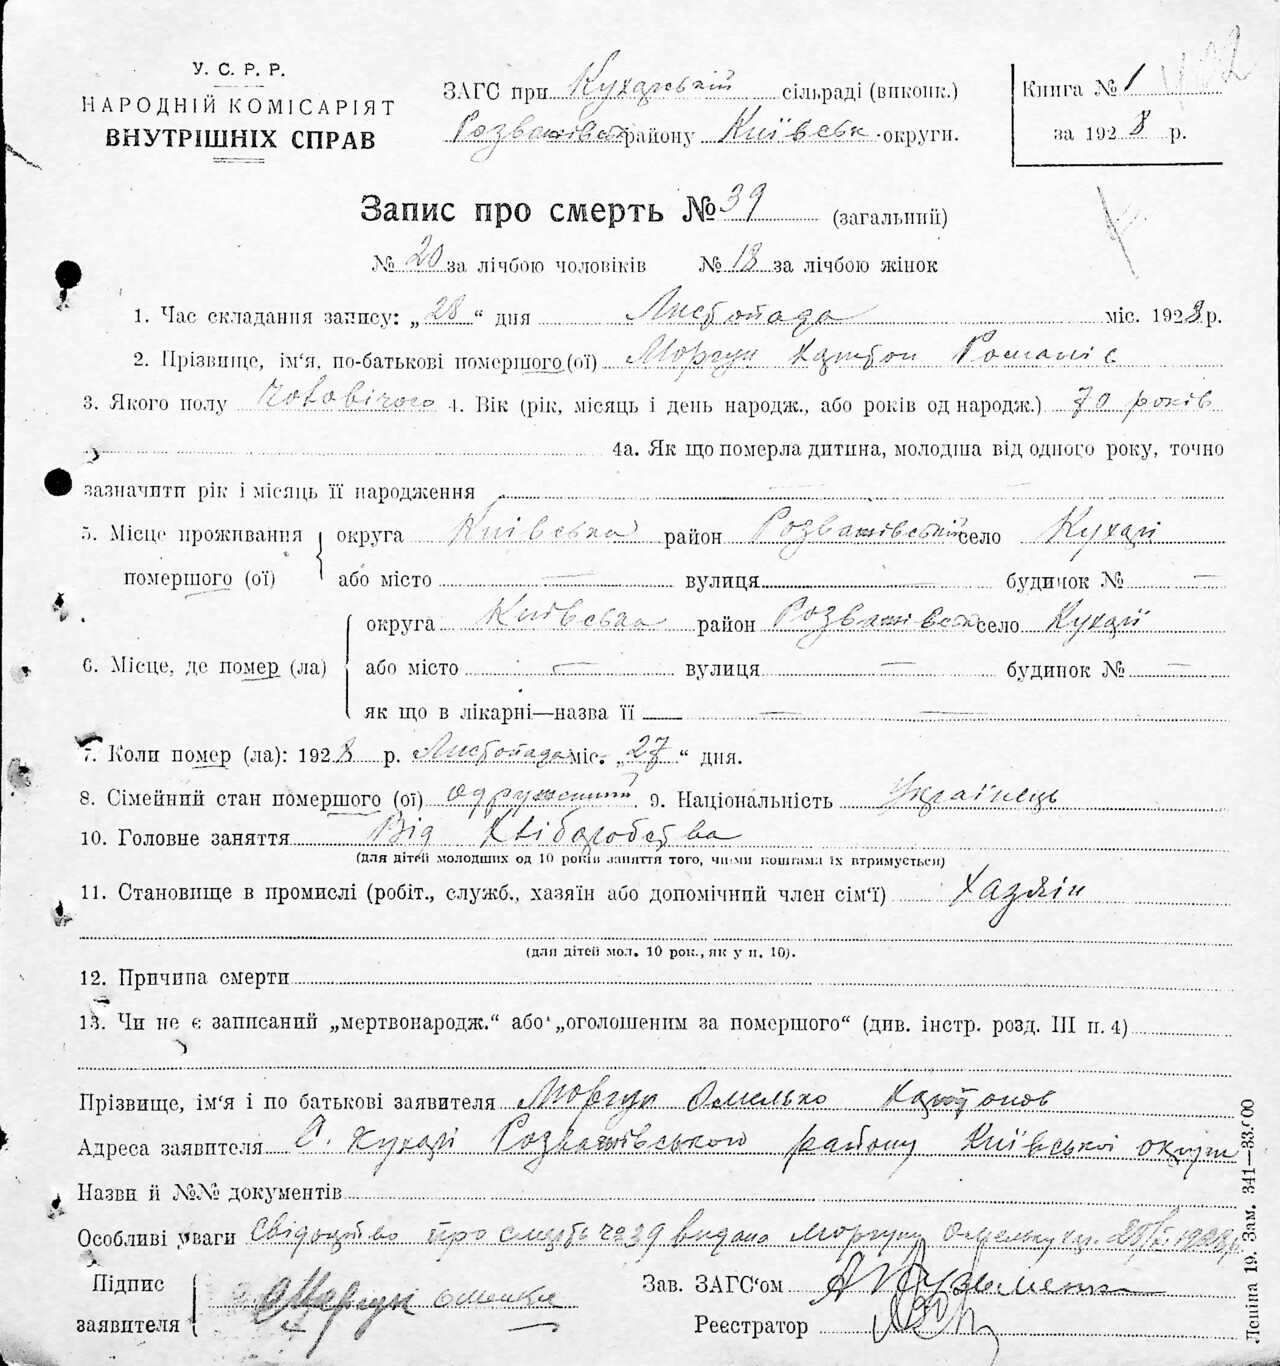 У. С. Р. Р.
НАРОДНІЙ КОМІСАРІЯТ
ВНУТРІШНІХ СПРАВ
ЗАГС при Кухарській сільраді (виконк.)
Розважівськ району Київськ округи.
Книга № 1
за 1928 р.
Запис про смерть № 39 (загальний)
№ 20 за лічбою чоловіків № 18 за лічбою жінок
1. Час складання запису: „28“ дня Листопада міс. 1928 р.
2. Прізвище, ім'я, по-батькові помершого (ої) Моргун Каптон Романів
3. Якого полу чоловічого 4. Вік (рік, місяць і день народж., або років од народж.) 70 років
4а. Як що померла дитина, молодша від одного року, точно
зазначити рік і місяць її народження
5. Місце проживання помершого (ої) округа Київська район Розважівський село Кухарі
або місто — вулиця — будинок № —
6. Місце, де помер (ла) округа Київська район Розважівськ село Кухарі
або місто — вулиця — будинок № —
як що в лікарні—назва її —
7. Коли помер (ла): 1928 р. Листопада міс. „27“ дня.
8. Сімейний стан помершого (ої) одружений 9. Національність Українець
10. Головне заняття Від хліборобства
(для дітей молодших од 10 років заняття того, чиїми коштами їх втримується)
11. Становище в промислі (робіт., служб., хазяїн або допомічний член сім'ї) хазяїн
(для дітей мол. 10 рок., як у п. 10).
12. Причина смерти
13. Чи не є записаний „мертвонародж.“ або „оголошеним за помершого“ (див. інстр. розд. III п. 4)
Прізвище, ім'я і по батькові заявителя Моргун Омелько Каптонов
Адреса заявителя С. Кухарі Розважівського району Київської округи
Назви й №№ документів
Особливі уваги Свідоцтво про смерть № 39 видано Моргуну Омельку
Підпис заявителя Моргун Омелько
Зав. ЗАГС'ом
Реєстратор
Леніна 19. Зам. 341—33.000